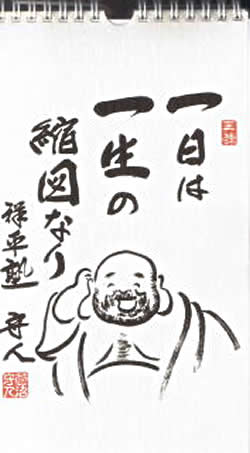 一日は
一生の
縮図なり
祥平塾 守人